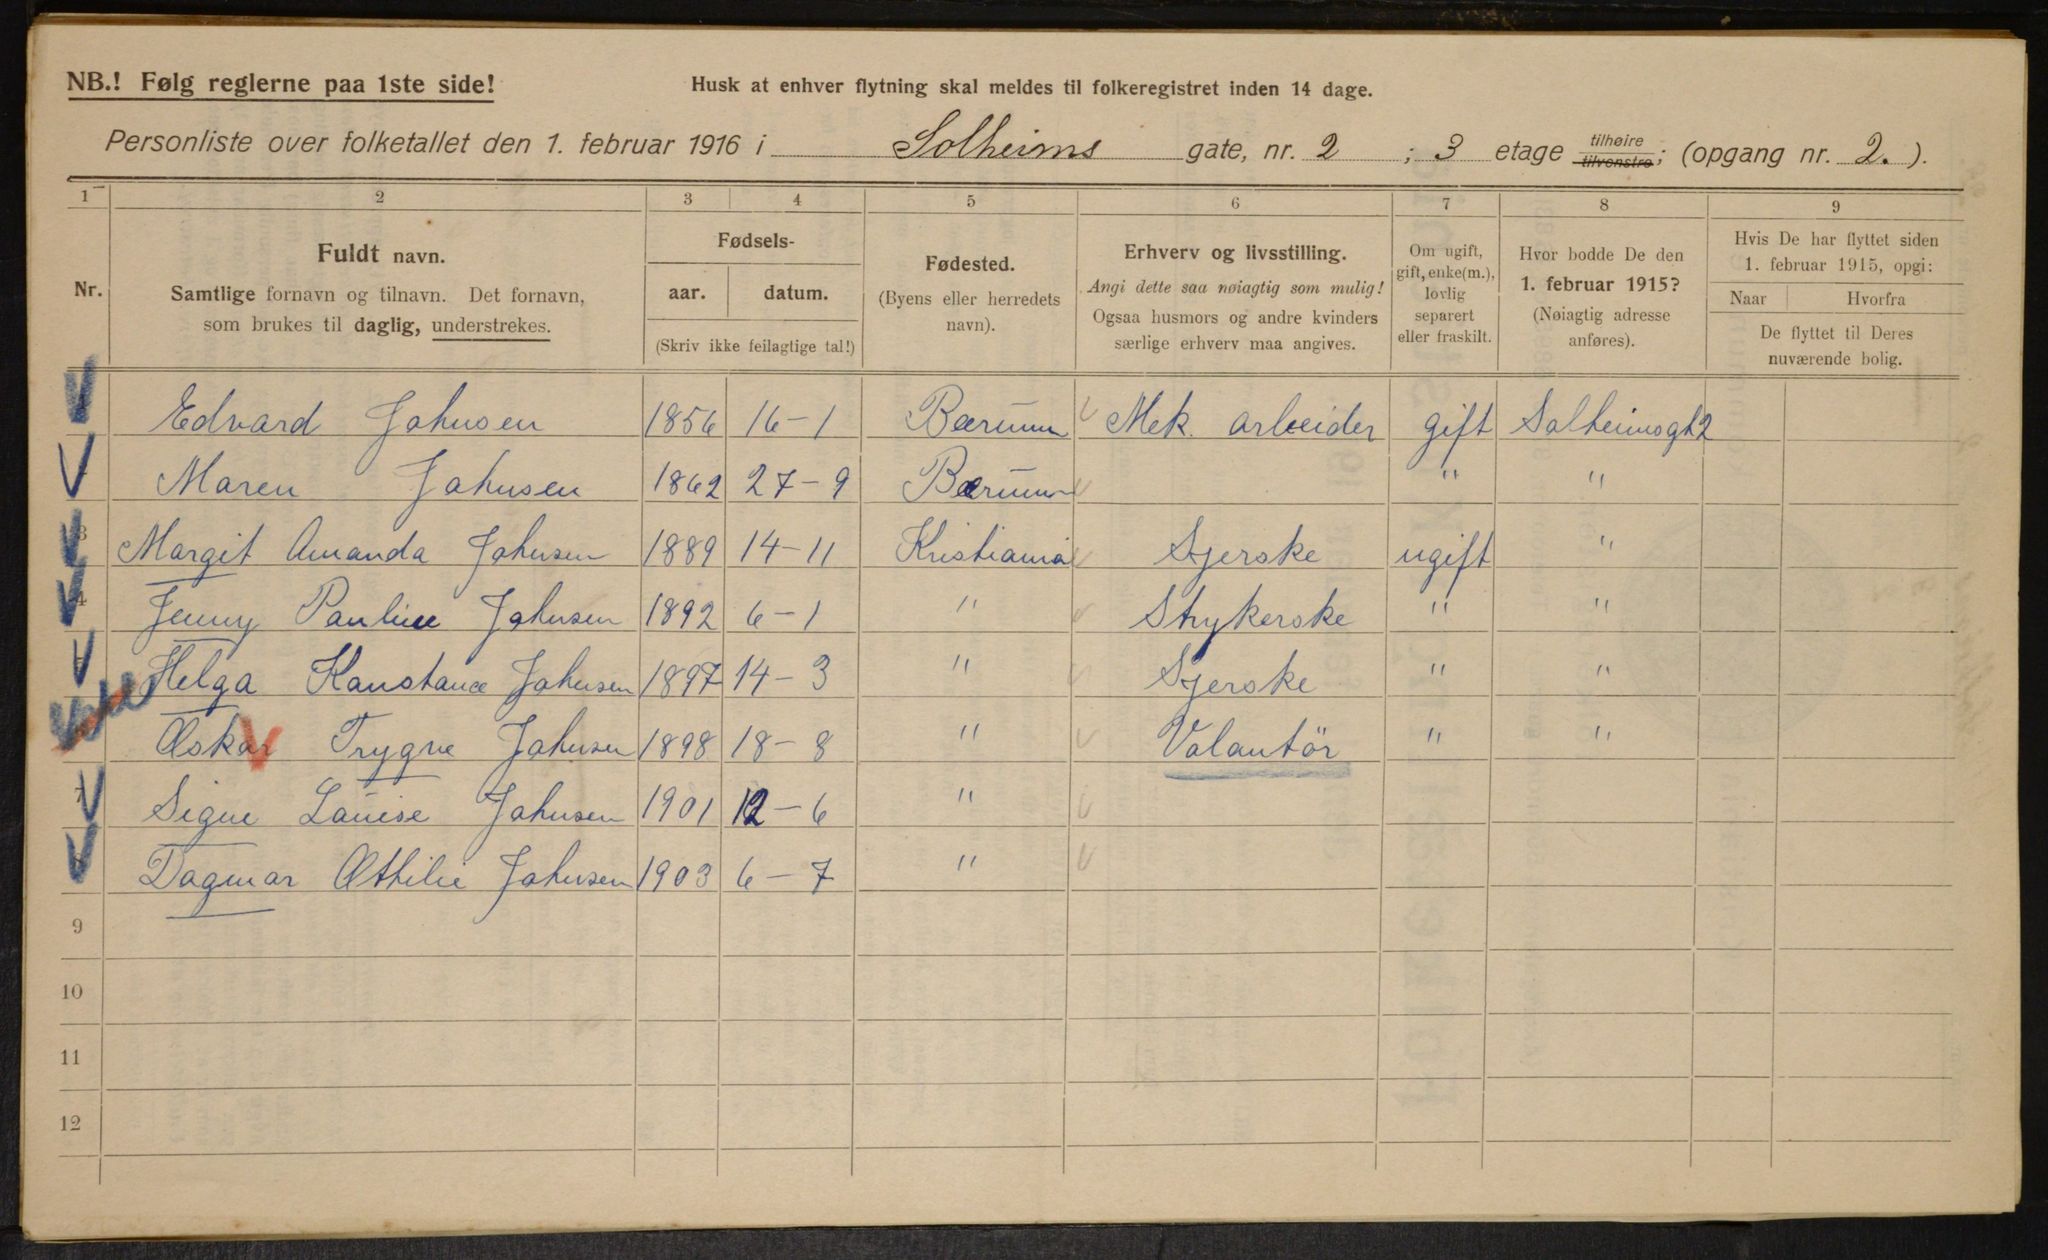 NB.! Følg reglerne paa 1ste side!
Husk at enhver flytning skal meldes til folkeregistret inden 14 dage.
Personliste over folketallet den 1. februar 1916 i Solheims gate, nr. 2 ; 3 etage tilhøire tilvenstre; (opgang nr. 2. ).
1 2 3 4 5 6 7 8 9
Nr.
Fuldt navn.
Samtlige fornavn og tilnavn. Det fornavn,
som brukes til daglig, understrekes.
Fødsels-
aar. datum.
(Skriv ikke feilagtige tal!)
Fødested.
(Byens eller herredets
navn).
Erhverv og livsstilling.
Angi dette saa nøiagtig som mulig!
Ogsaa husmors og andre kvinders
særlige erhverv maa angives.
Om ugift,
gift, enke(m.),
lovlig
separert
eller fraskilt.
Hvor bodde De den
1. februar 1915?
(Nøiagtig adresse
anføres).
Hvis De har flyttet siden
1. februar 1915, opgi:
Naar Hvorfra
De flyttet til Deres
nuværende bolig.
Edvard Johnsen 1856 16-1 Bærum Mek. arbeider gift Solheimsgt 2
Maren Johnsen 1862 27-9 Bærum " "
3 Margit Amanda Johnsen 1889 14-11 Kristiania Syerske ugift "
4 Jenny Pauline Johnsen 1892 6-1 " Strykerske " "
Helga Konstance Johnsen 1897 14-3 " Syerske " "
Oskar Trygve Johnsen 1898 18-8 " Volantör " "
7 Signe Louise Johnsen 1901 12-6 "
8 Dagmar Othilie Johnsen 1903 6-7 "
9
10
11
12